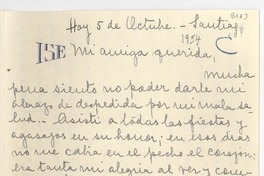 Hoy 5 de Octubre. - Santiago
1954
ISE Mi amiga querida, C
mucha
pena siento no poder darle mi
abrazo de despedida por mi mala sa-
lud. - Asistí a todas las fiestas y
agasajos en su honor; en esos días
no me cabía en el pecho el corazón;
era tanta mi alegría al ver y